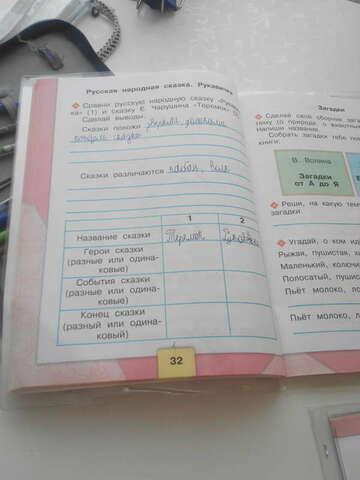 Русская народная сказка. Рукавичка
Сравни русскую народную сказку «Рукавич-
ка» (1) и сказку Е. Чарушина «Теремок» (2).
Сделай выводы.
Сказки похожи
сказка
Сказки различаются кабан, волк
1 2
Название сказки Теремок Рукавичка
Герои сказки
(разные или одина-
ковые)
События сказки
(разные или одина-
ковые)
Конец сказки
(разный или одина-
ковый)
32
Загадки
Сделай свой сборник зага
тему (о природе, о животны
Напиши название.
Собрать загадки тебе по
книги.
В. Волина
Загадки
от А до Я
Реши, на какую тему
загадки.
Угадай, о ком ид
Рыжая, пушистая, хи
Маленький, колючий
Полосатый, пушист
Пьёт молоко, ло
Пьёт молоко, ло